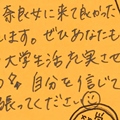 奈良女に来て良かった
います。ぜひあなたも
大学生活を充実させ
自分を信じて
張ってください